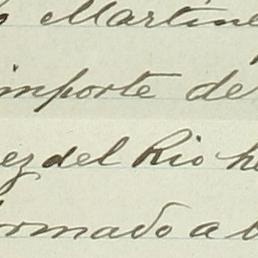 Martine
importe de
ez del Rio he
ormado a